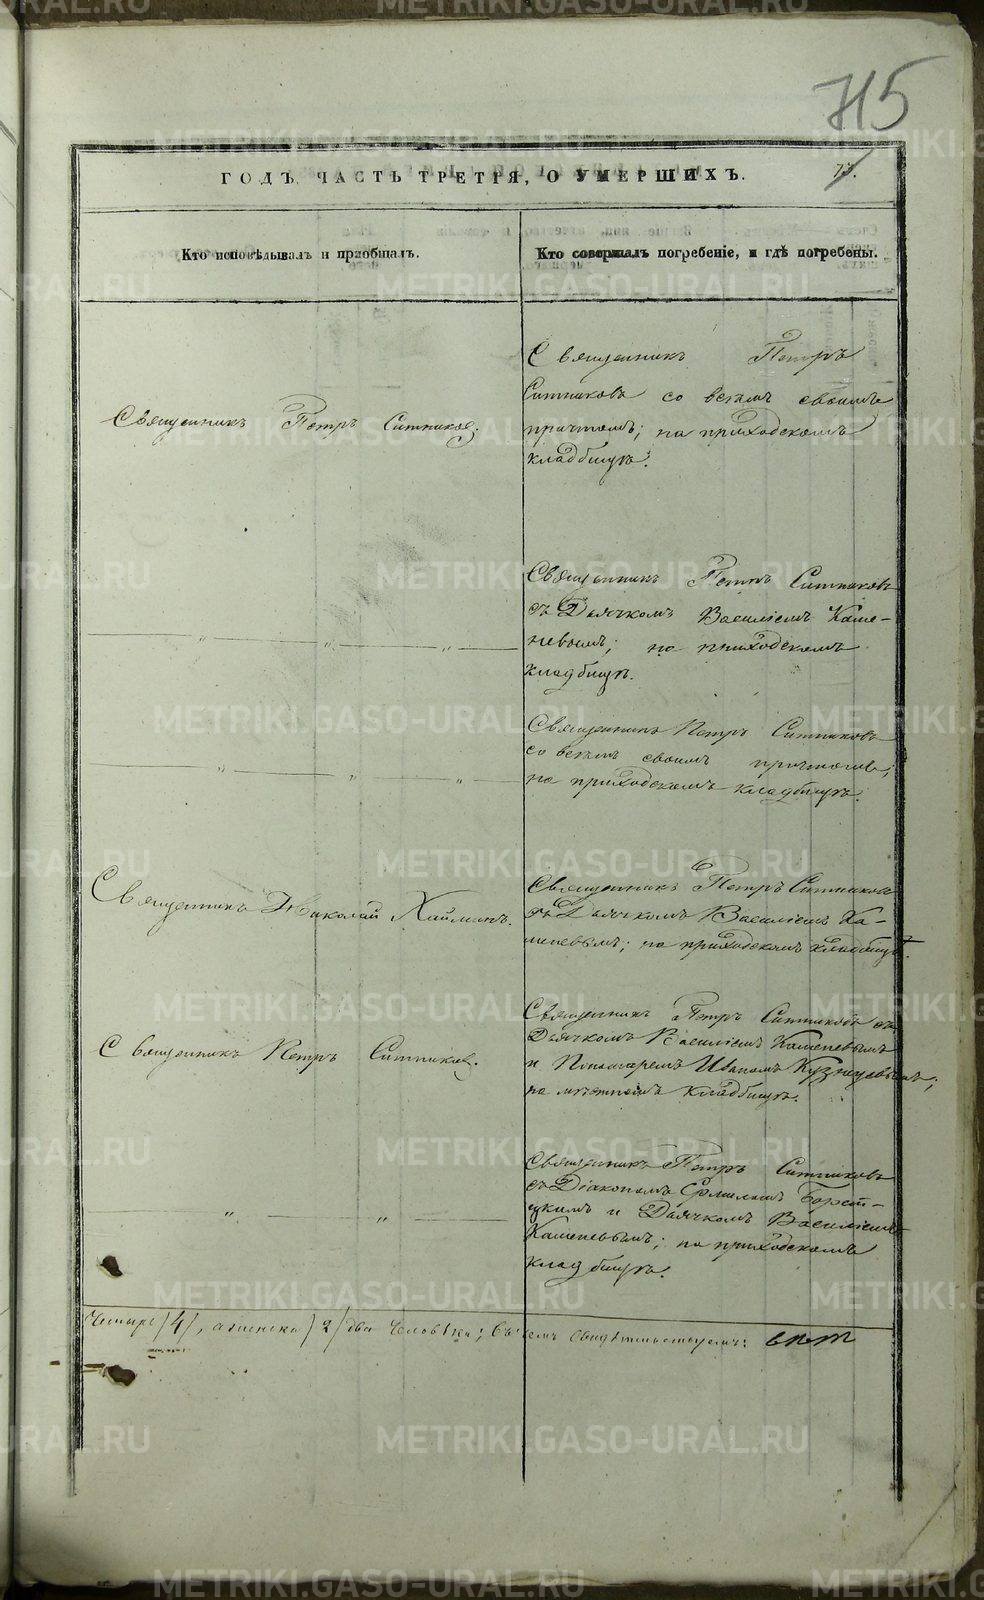 METRIKI.GASO-URAL.RU
715
ГОДЪ, ЧАСТЬ ТРЕТІЯ, О УМЕРШИХЪ.
Кто исповѣдывалъ и пріобщалъ.
Кто совершалъ погребеніе, и гдѣ погребены.
Священникъ Петръ Ситниковъ.
Священникъ Петръ
Ситниковъ со всѣмъ своимъ
причтомъ; на приходскомъ
кладбищѣ.
— „ — „ — „ —
Священникъ Петръ Ситниковъ
съ Дьячкомъ Василіемъ Каме-
невымъ; на приходскомъ
кладбищѣ.
— „ — „ — „ —
Священникъ Петръ Ситниковъ
со всѣмъ своимъ причтомъ;
на приходскомъ кладбищѣ.
Священникъ Николай
Священникъ Петръ Ситниковъ
съ Дьячкомъ Василіемъ Ка-
меневымъ; на приходскомъ кладбищѣ.
Священникъ Петръ Ситниковъ.
Священникъ Петръ Ситниковъ съ
Дьячкомъ Василіемъ Каменевымъ
и Пономаремъ Иваномъ Кузнецовымъ;
на мѣстномъ кладбищѣ.
— „ — „ —
Священникъ Петръ Ситниковъ
съ Діакономъ
и Дьячкомъ Василіемъ
Каменевымъ; на приходскомъ
кладбищѣ.
Четыре /4/, а женска /2/ два человѣка; въ чемъ свидѣтельствуемъ: